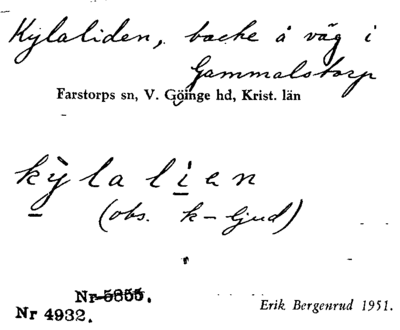 Kylaliden, backe å väg i
Gammalstorp
Farstorps sn, V. Göinge hd, Krist. län
kỳlalien
(obs. k-ljud)
Nr 5655.
Nr 4932.
Erik Bergenrud 1951.